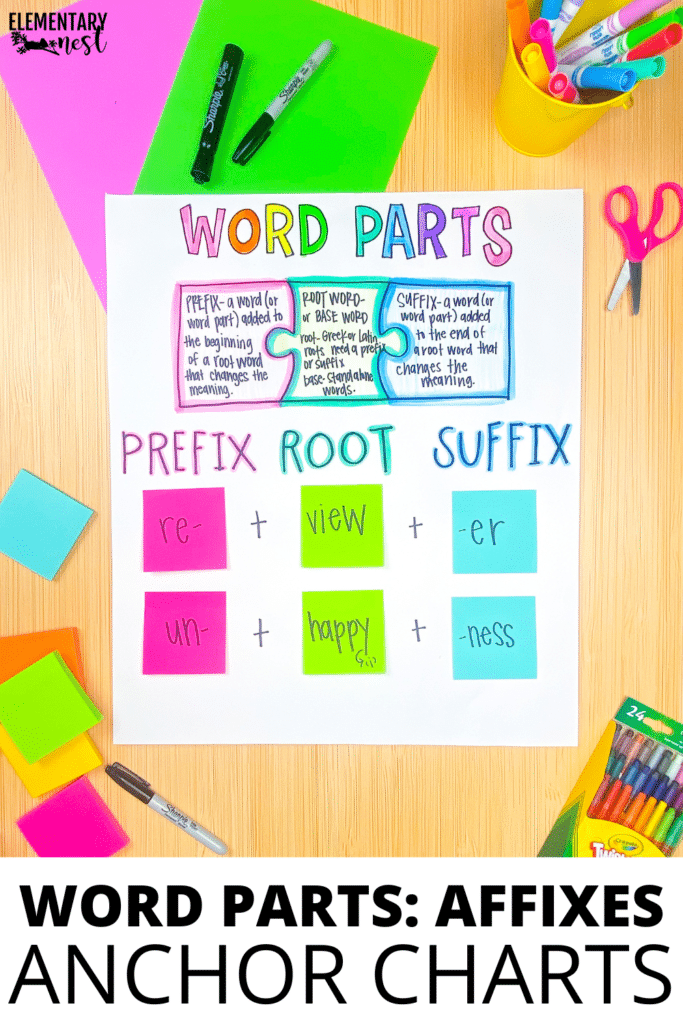 ELEMENTARY
nest
Sharpie
Sharpie
WORD PARTS
PREFIX- a word (or
word part) added to
the beginning
of a root word
that changes the
meaning.
ROOT WORD-
or BASE WORD
root- Greek or Latin
roots need a prefix
or suffix
base- Standalone
words.
SUFFIX- a word (or
word part) added
to the end of
a root word that
changes the
meaning.
PREFIX ROOT SUFFIX
re- + view + -er
un- + happy + -ness
Sharpie
24
Crayola
WORD PARTS: AFFIXES
ANCHOR CHARTS